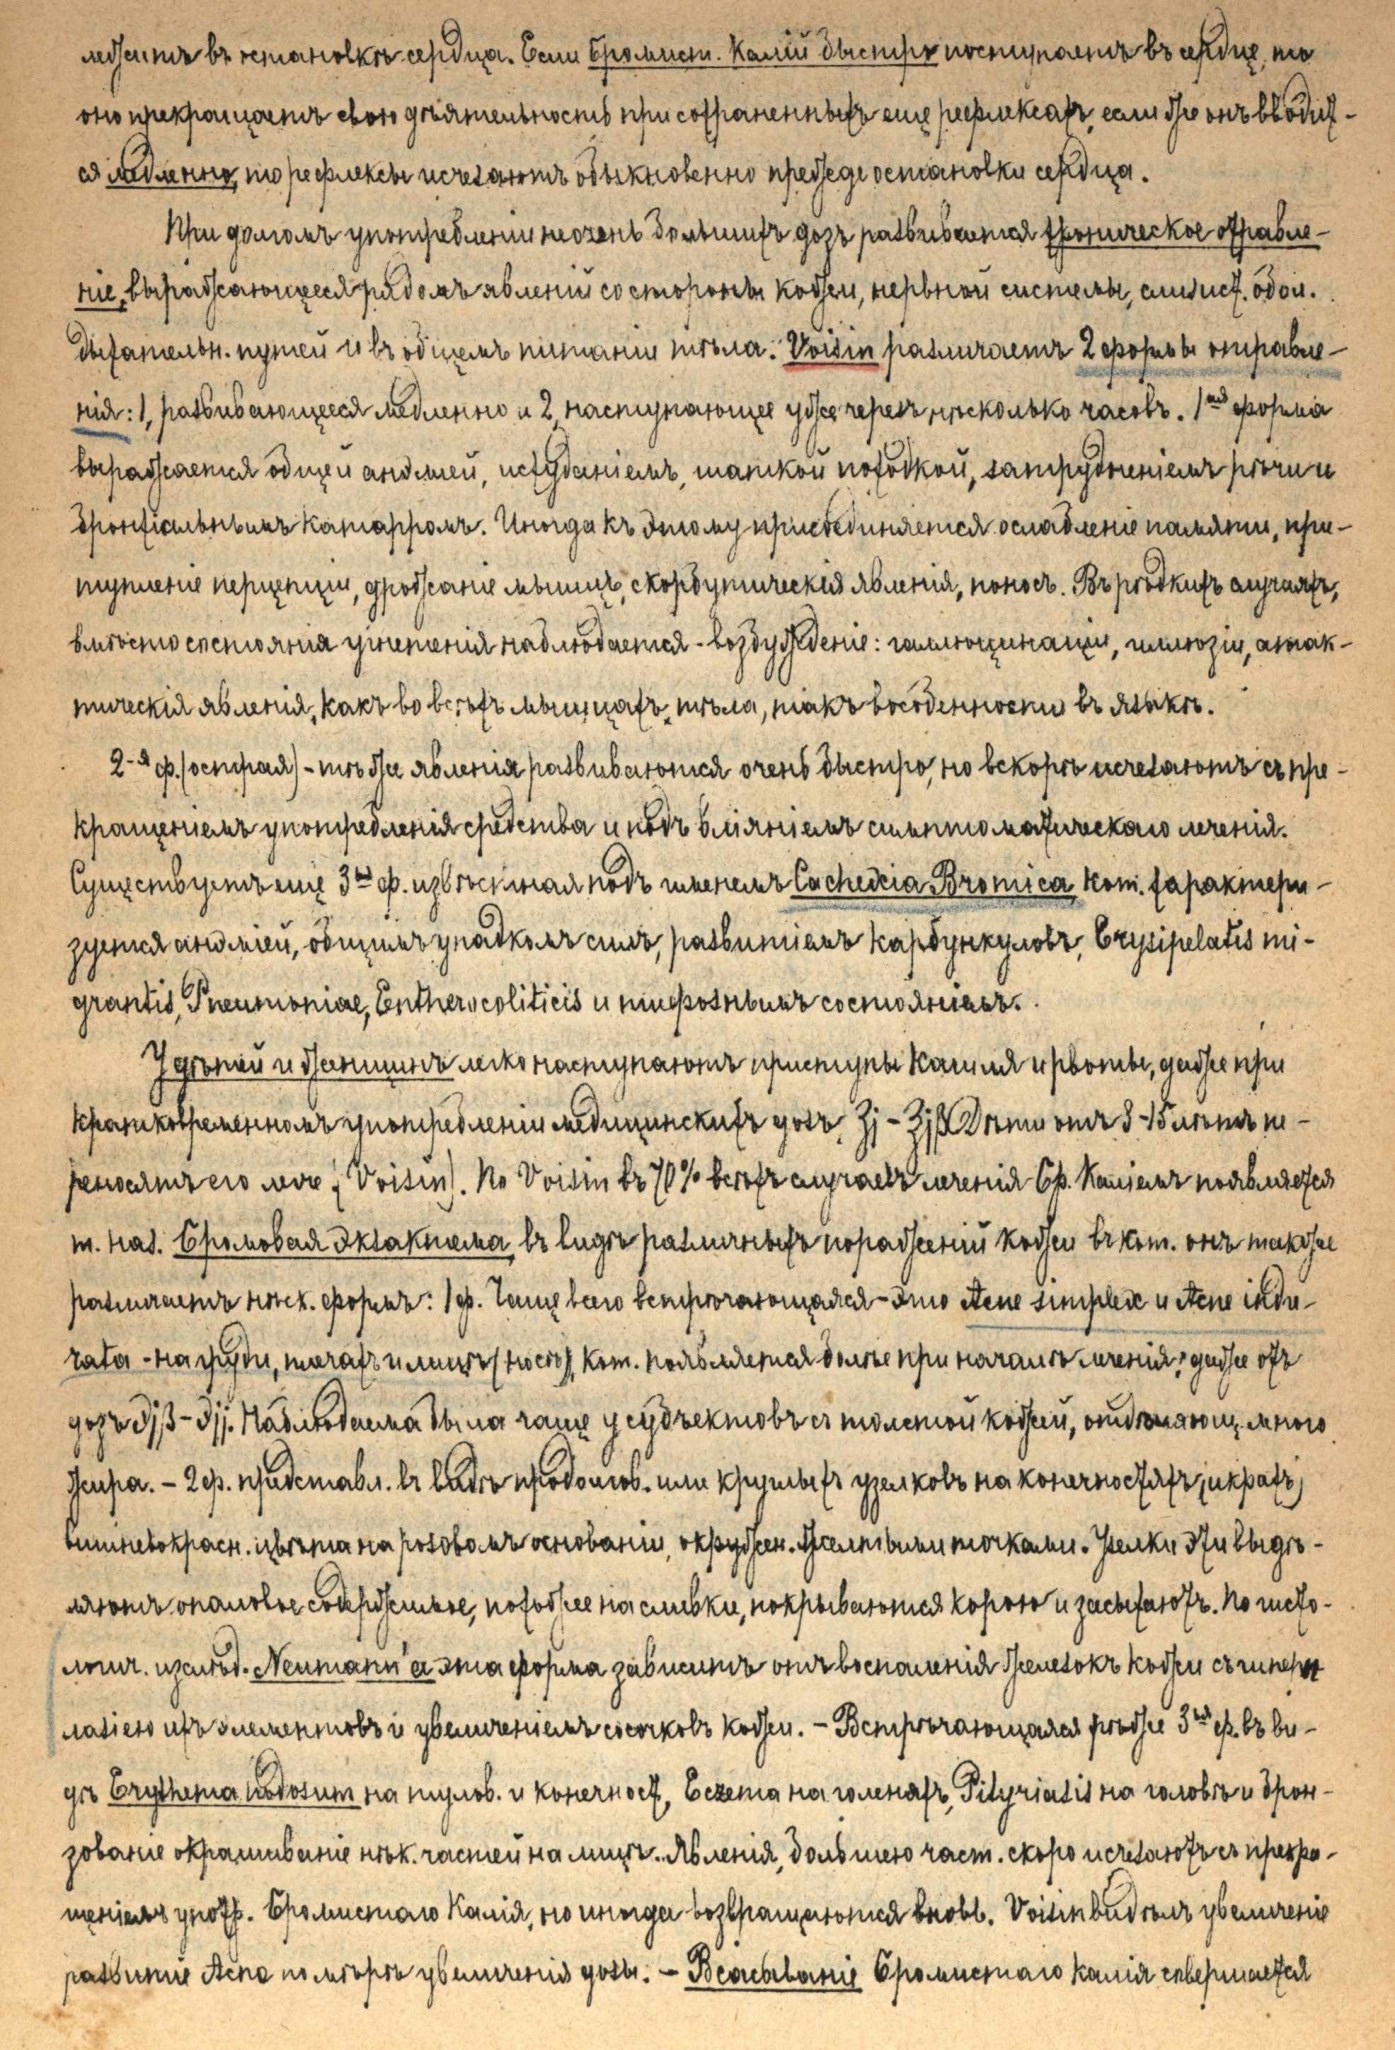 лежитъ въ остановкѣ сердца. Если Бромист. Калій быстро поступаетъ въ сердце, то
оно прекращаетъ свою дѣятельность при сохраненныхъ еще рефлексахъ, если же онъ вводит-
ся медленно, то рефлексы исчезаютъ обыкновенно прежде остановки сердца.
При долгомъ употребленіи не очень большихъ дозъ развивается хроническое отравле-
ніе, выражающееся рядомъ явленій со стороны кожи, нервной системы, слизист. обол.
дыхательн. путей и въ общемъ питаніи тѣла. Voisin различаетъ 2 формы отравле-
нія: 1, развивающееся медленно и 2, наступающее уже черезъ нѣсколько часовъ. 1ая форма
выражается общей анэміей, исхуданіемъ, шаткой походкой, затрудненіемъ рѣчи и
бронхіальнымъ катарромъ. Иногда къ этому присоединяется ослабленіе памяти, при-
тупленіе перцепціи, дрожаніе мышцъ, скорбутическія явленія, поносъ. Въ рѣдкихъ случаяхъ,
вмѣсто состоянія угнетенія наблюдается - возбужденіе: галлюцинаціи, иллюзіи, атак-
тическія явленія, какъ во всѣхъ мышцахъ тѣла, такъ въ особенности въ языкѣ.
2-я ф. (острая) - тѣ же явленія развиваются очень быстро, но вскорѣ исчезаютъ съ пре-
кращеніемъ употребленія средства и подъ вліяніемъ симптоматическаго леченія.
Существуетъ еще 3ья ф. извѣстная подъ именемъ Cachexia Bromica, кот. характери-
зуется анэміей, общимъ упадкомъ силъ, развитіемъ карбункуловъ, Erysipelatis mi-
grantis, Pneumoniae, Entherocoliticis и тифознымъ состояніемъ.
У дѣтей и женщинъ легко наступаютъ приступы кашля и рвоты, даже при
кратковременномъ употребленіи медицинскихъ дозъ ʒj - ʒjβ (Дѣти отъ 8-15 лѣтъ пе-
реносятъ его легче (Voisin). По Voisin въ 70% всѣхъ случаевъ леченія Бр. Каліемъ появляется
т. наз. Бромовая экзантема, въ видѣ различныхъ пораженій кожи въ кот. онъ также
различаетъ нѣск. формъ: 1 ф. Чаще всего встрѣчающаяся - это Acne simplex и Acne indu-
rata - на груди, плечахъ и лицѣ (носъ), кот. появляется болѣе при началѣ леченія, даже отъ
дозъ ℈jβ - ℈jj. Наблюдаема была чаще у субъектовъ съ толстой кожей, отдѣляющ. много
жира. - 2 ф. представл. въ видѣ продолгов. или круглыхъ узелковъ на конечностяхъ (икрахъ)
вишневокрасн. цвѣта на розовомъ основаніи, окружен. желтыми точками. Узелки эти выдѣ-
ляютъ опаловое содержимое, похожее на сливки, покрываются корою и засыхаютъ. По гисто-
логич. изслѣд. Neumann'а эта форма зависитъ отъ воспаленія железокъ кожи съ гиперп
лазіею ихъ элементовъ и увеличеніемъ сосочковъ кожи. - Встрѣчающаяся рѣже 3ья ф. въ ви-
дѣ Erythema nodosum на тулов. и конечност, Eczema на голеняхъ, Pityriasis на головѣ и брон-
зованіе окрашиваніе нѣк. частей на лицѣ. Явленія, большею част. скоро исчезаютъ съ прекра-
щеніемъ употр. Бромистаго Калія, но иногда возвращаются вновь. Voisin видѣлъ увеличеніе
развитіе Acne по мѣрѣ увеличенія дозы. - Всасываніе Бромистаго калія совершается